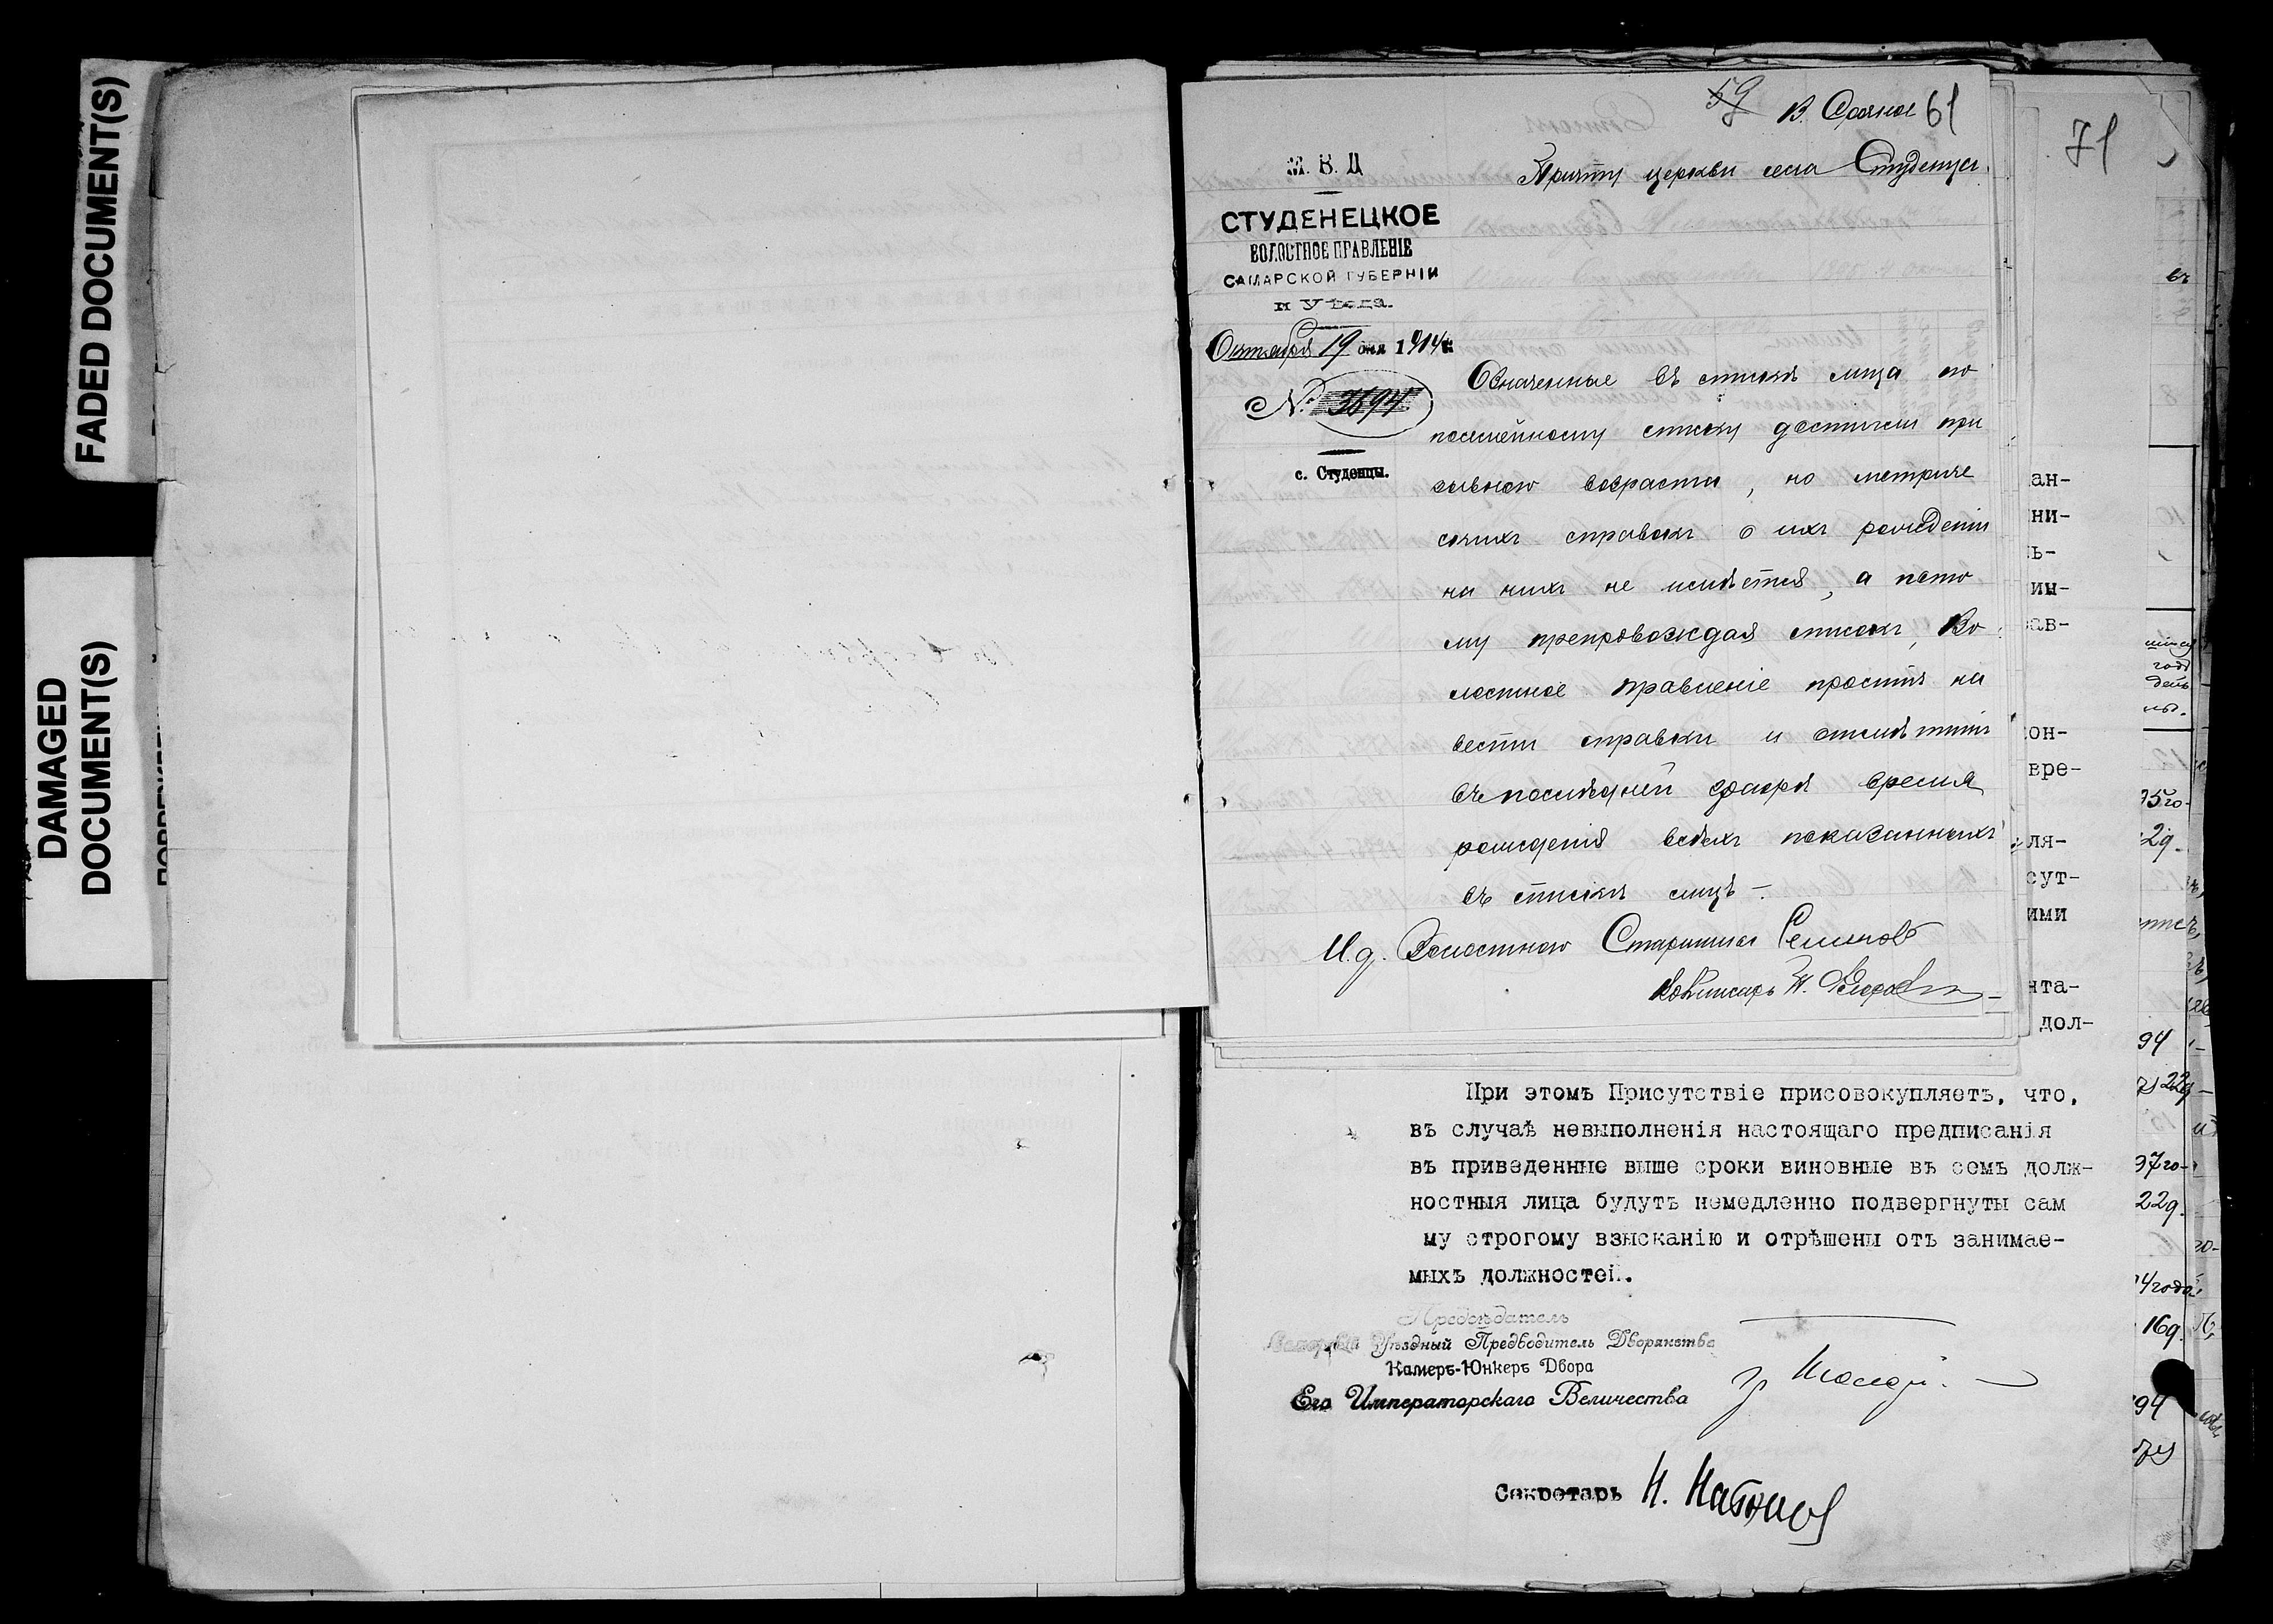 FADED DOCUMENT(S)
DAMAGED
DOCUMENT(S)
59 В. Срочное 61
71
М. В. Д
Причту церкви села Студенцы.
СТУДЕНЕЦКОЕ
ВОЛОСТНОЕ ПРАВЛЕНІЕ
САМАРСКОЙ ГУБЕРНІИ
и Уѣзда.
Октября 19 дня 1914 г.
№ 3694
с. Студенцы.
Означенные въ списке лица по
посемейному списку достигли при
зывного возраста, но метриче
скихъ справокъ о ихъ рожденіи
на нихъ не имѣется, а пото
му препровождая списокъ, Во
лостное правленіе проситъ на
вести справки и отмѣтить
въ последней графѣ время
рожденія всѣхъ показанныхъ
въ списке лицъ –
И.д. Волостного Старшины Семинов
ан-
ни-
ь-
ин-
ав-
он-
вре-
ля-
сут-
ими
нта-
дол-
При этомъ Присутствіе присовокупляетъ, что,
въ случаѣ невыполненія настоящаго предписанія
въ приведенные выше сроки виновные въ семъ долж-
ностныя лица будутъ немедленно подвергнуты сам
му строгому взысканію и отрѣшены отъ занимае-
мыхъ должностей.
Предсѣдатель
Уѣздный Предводитель Дворянства
Камеръ-Юнкеръ Двора
Его Императорскаго Величества
Секретарь Н.
94
97го-
22д.
4года
16д.
94